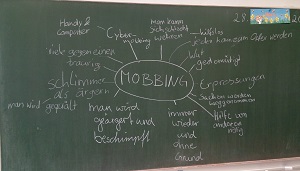 Handy &
Computer
Cyber-
mobbing
man kann
sich schlecht
wehren
hilflos
jeder kann ein Opfer werden
28.
viele gegen einen
traurig
Wut
gedemütigt
MOBBING
schlimmer
als ärgern
man wird gequält
Erpressungen
Sachen werden
weggenommen
man wird
geärgert und
beschimpft
immer
wieder
und
ohne
Grund
Hilfe von
anderen
nötig